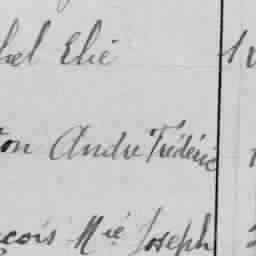 hel Elie
ton André Frédéric
çois Mie Joseph